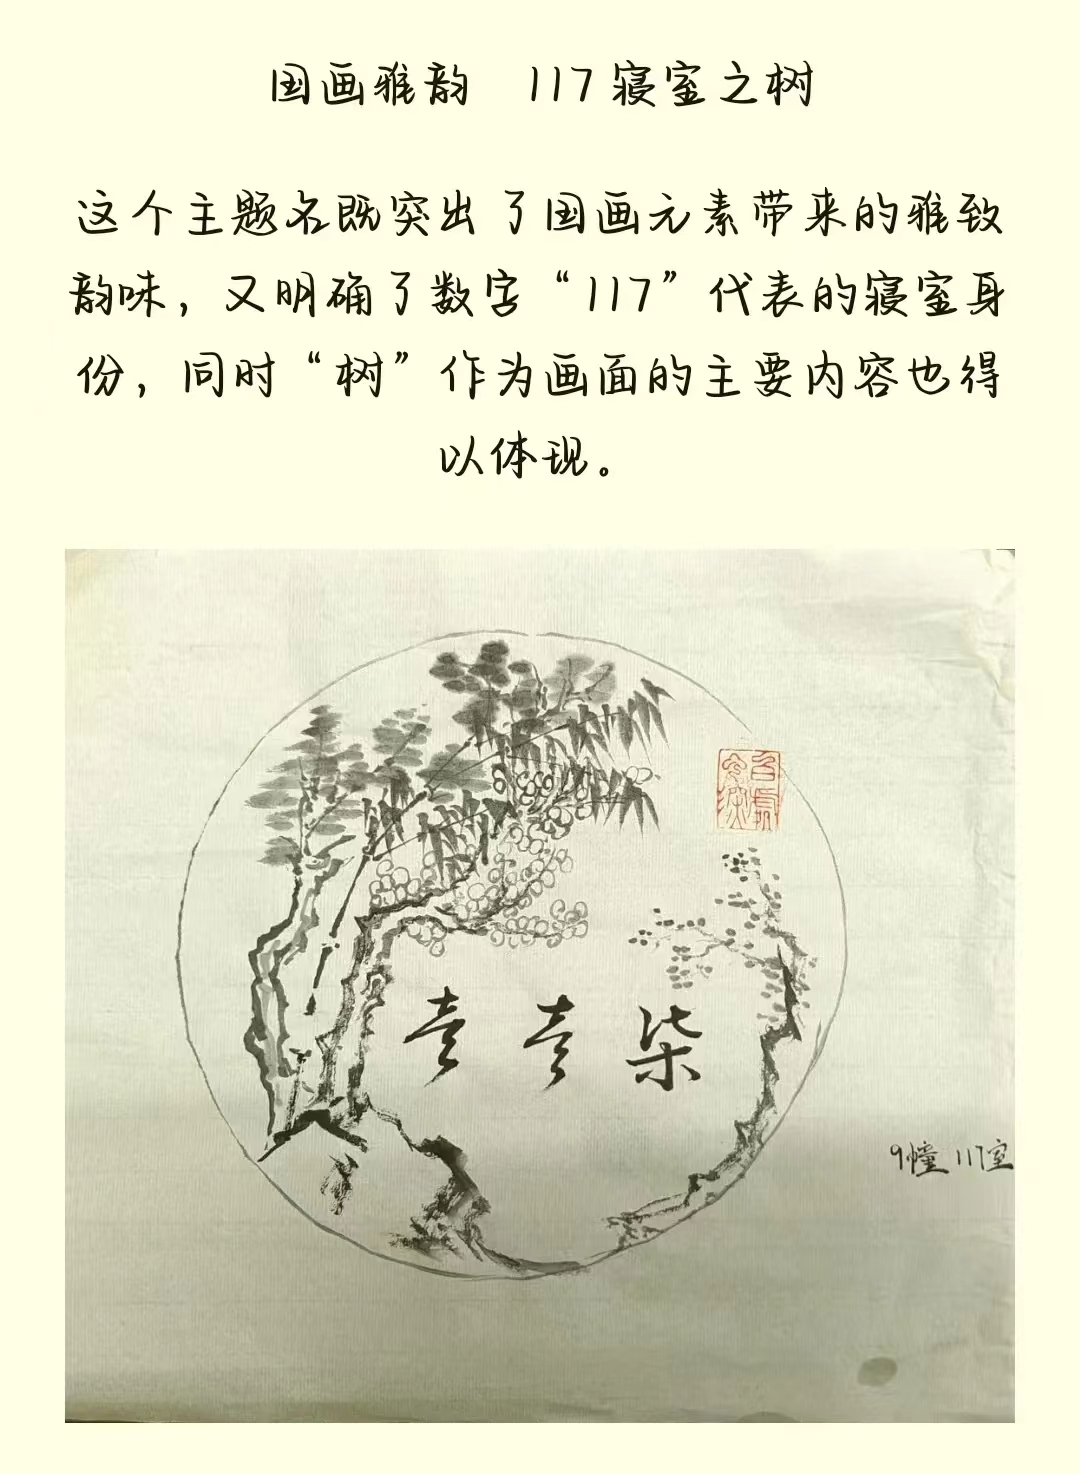 国画雅韵 117寝室之树
这个主题名既突出了国画元素带来的雅致
韵味，又明确了数字“117”代表的寝室身
份，同时“树”作为画面的主要内容也得
以体现。
壹壹柒
9幢117室